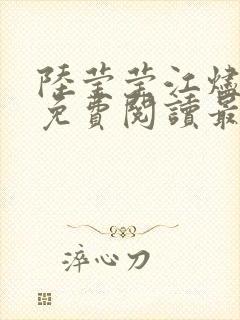 陸瑩瑩江燼
免費閱讀最
淬心刀